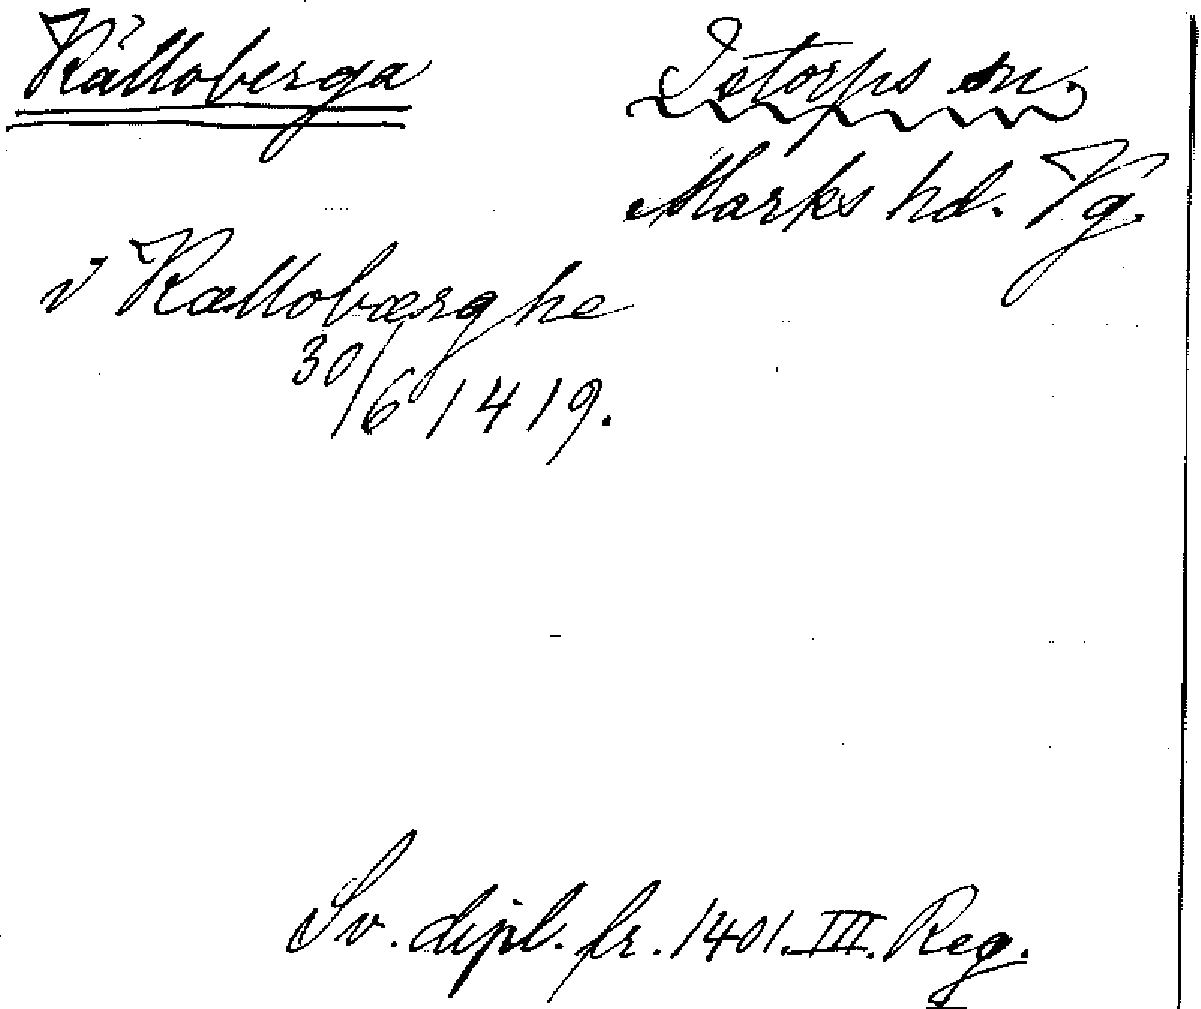 Källoberga
Istorps sn.
Marks hd. Vg.
i Kælloberghe
30/6 1419.
Sv. dipl. fr. 1401. III. Reg.